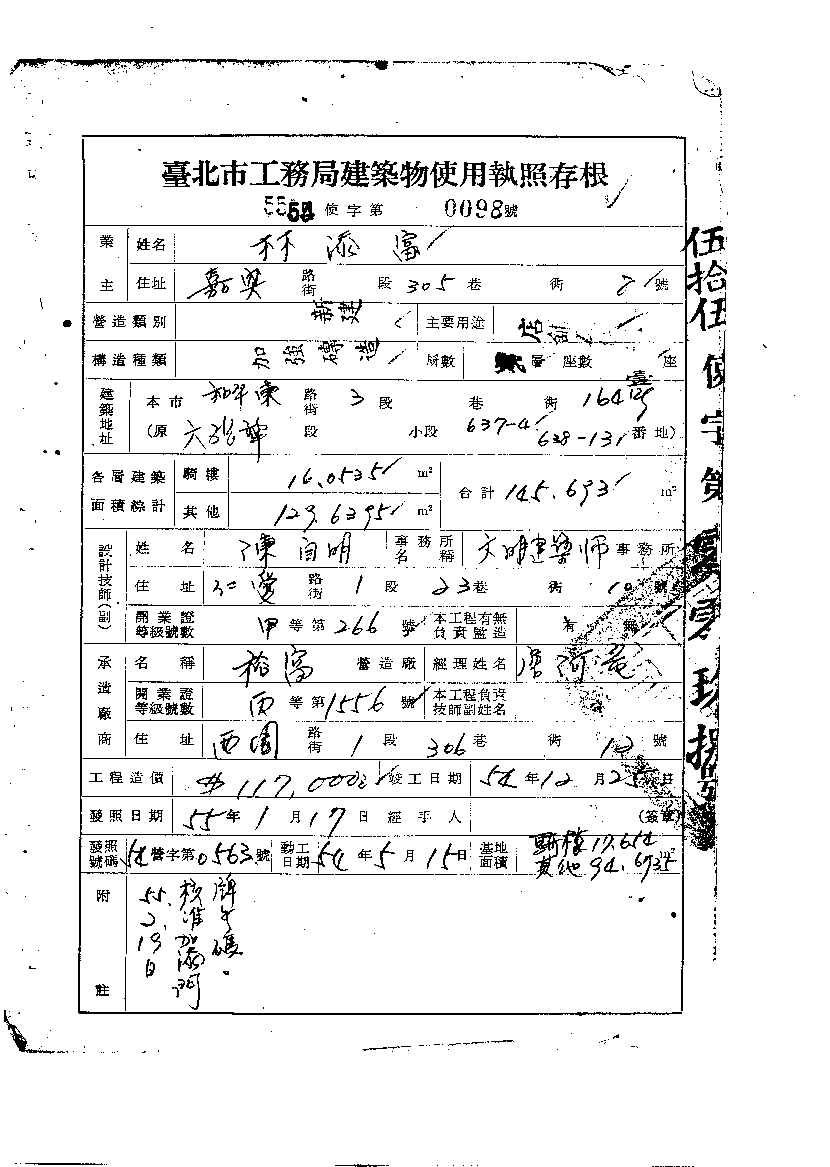 臺北市工務局建築物使用執照存根
55 使字第 0098號
業主 姓名 林添富
住址 嘉興 路街 段 305 巷 衖 21 號
營造類別 新建 主要用途 店舖
構造種類 加強磚造 層數 貳層 座數 壹座
建築地址 本市 和平東 路街 3 段 巷 衖 164號
(原 六張犂 段 小段 637-4 638-131 番地)
各層建築面積總計 騎樓 16.0535 m² 合計 145.693 m²
其他 129.6395 m²
設計技師(副) 姓名 陳自明 事務所名稱 文明建築師 事務所
住址 仁愛 路街 1 段 23 巷 衖 10 號
開業證等級號數 甲 等第 266 號 本工程有無負責監造 有 無
承造廠商 名稱 裕富 營造廠 經理姓名
開業證等級號數 丙 等第 1556 號 本工程負責技師副姓名
住址 西園 路街 1 段 306 巷 衖 12 號
工程造價 $117,000 竣工日期 54 年 12 月 25 日
發照日期 55 年 1 月 17 日 經手人 (簽章)
發照號碼 54 營字第 0563 號 動工日期 54 年 5 月 15 日 基地面積 騎樓 17.654 m² 其他 94.6935
附註
55.2.19日
核准加添門
牌號碼。
伍拾伍使字第 零玖捌號